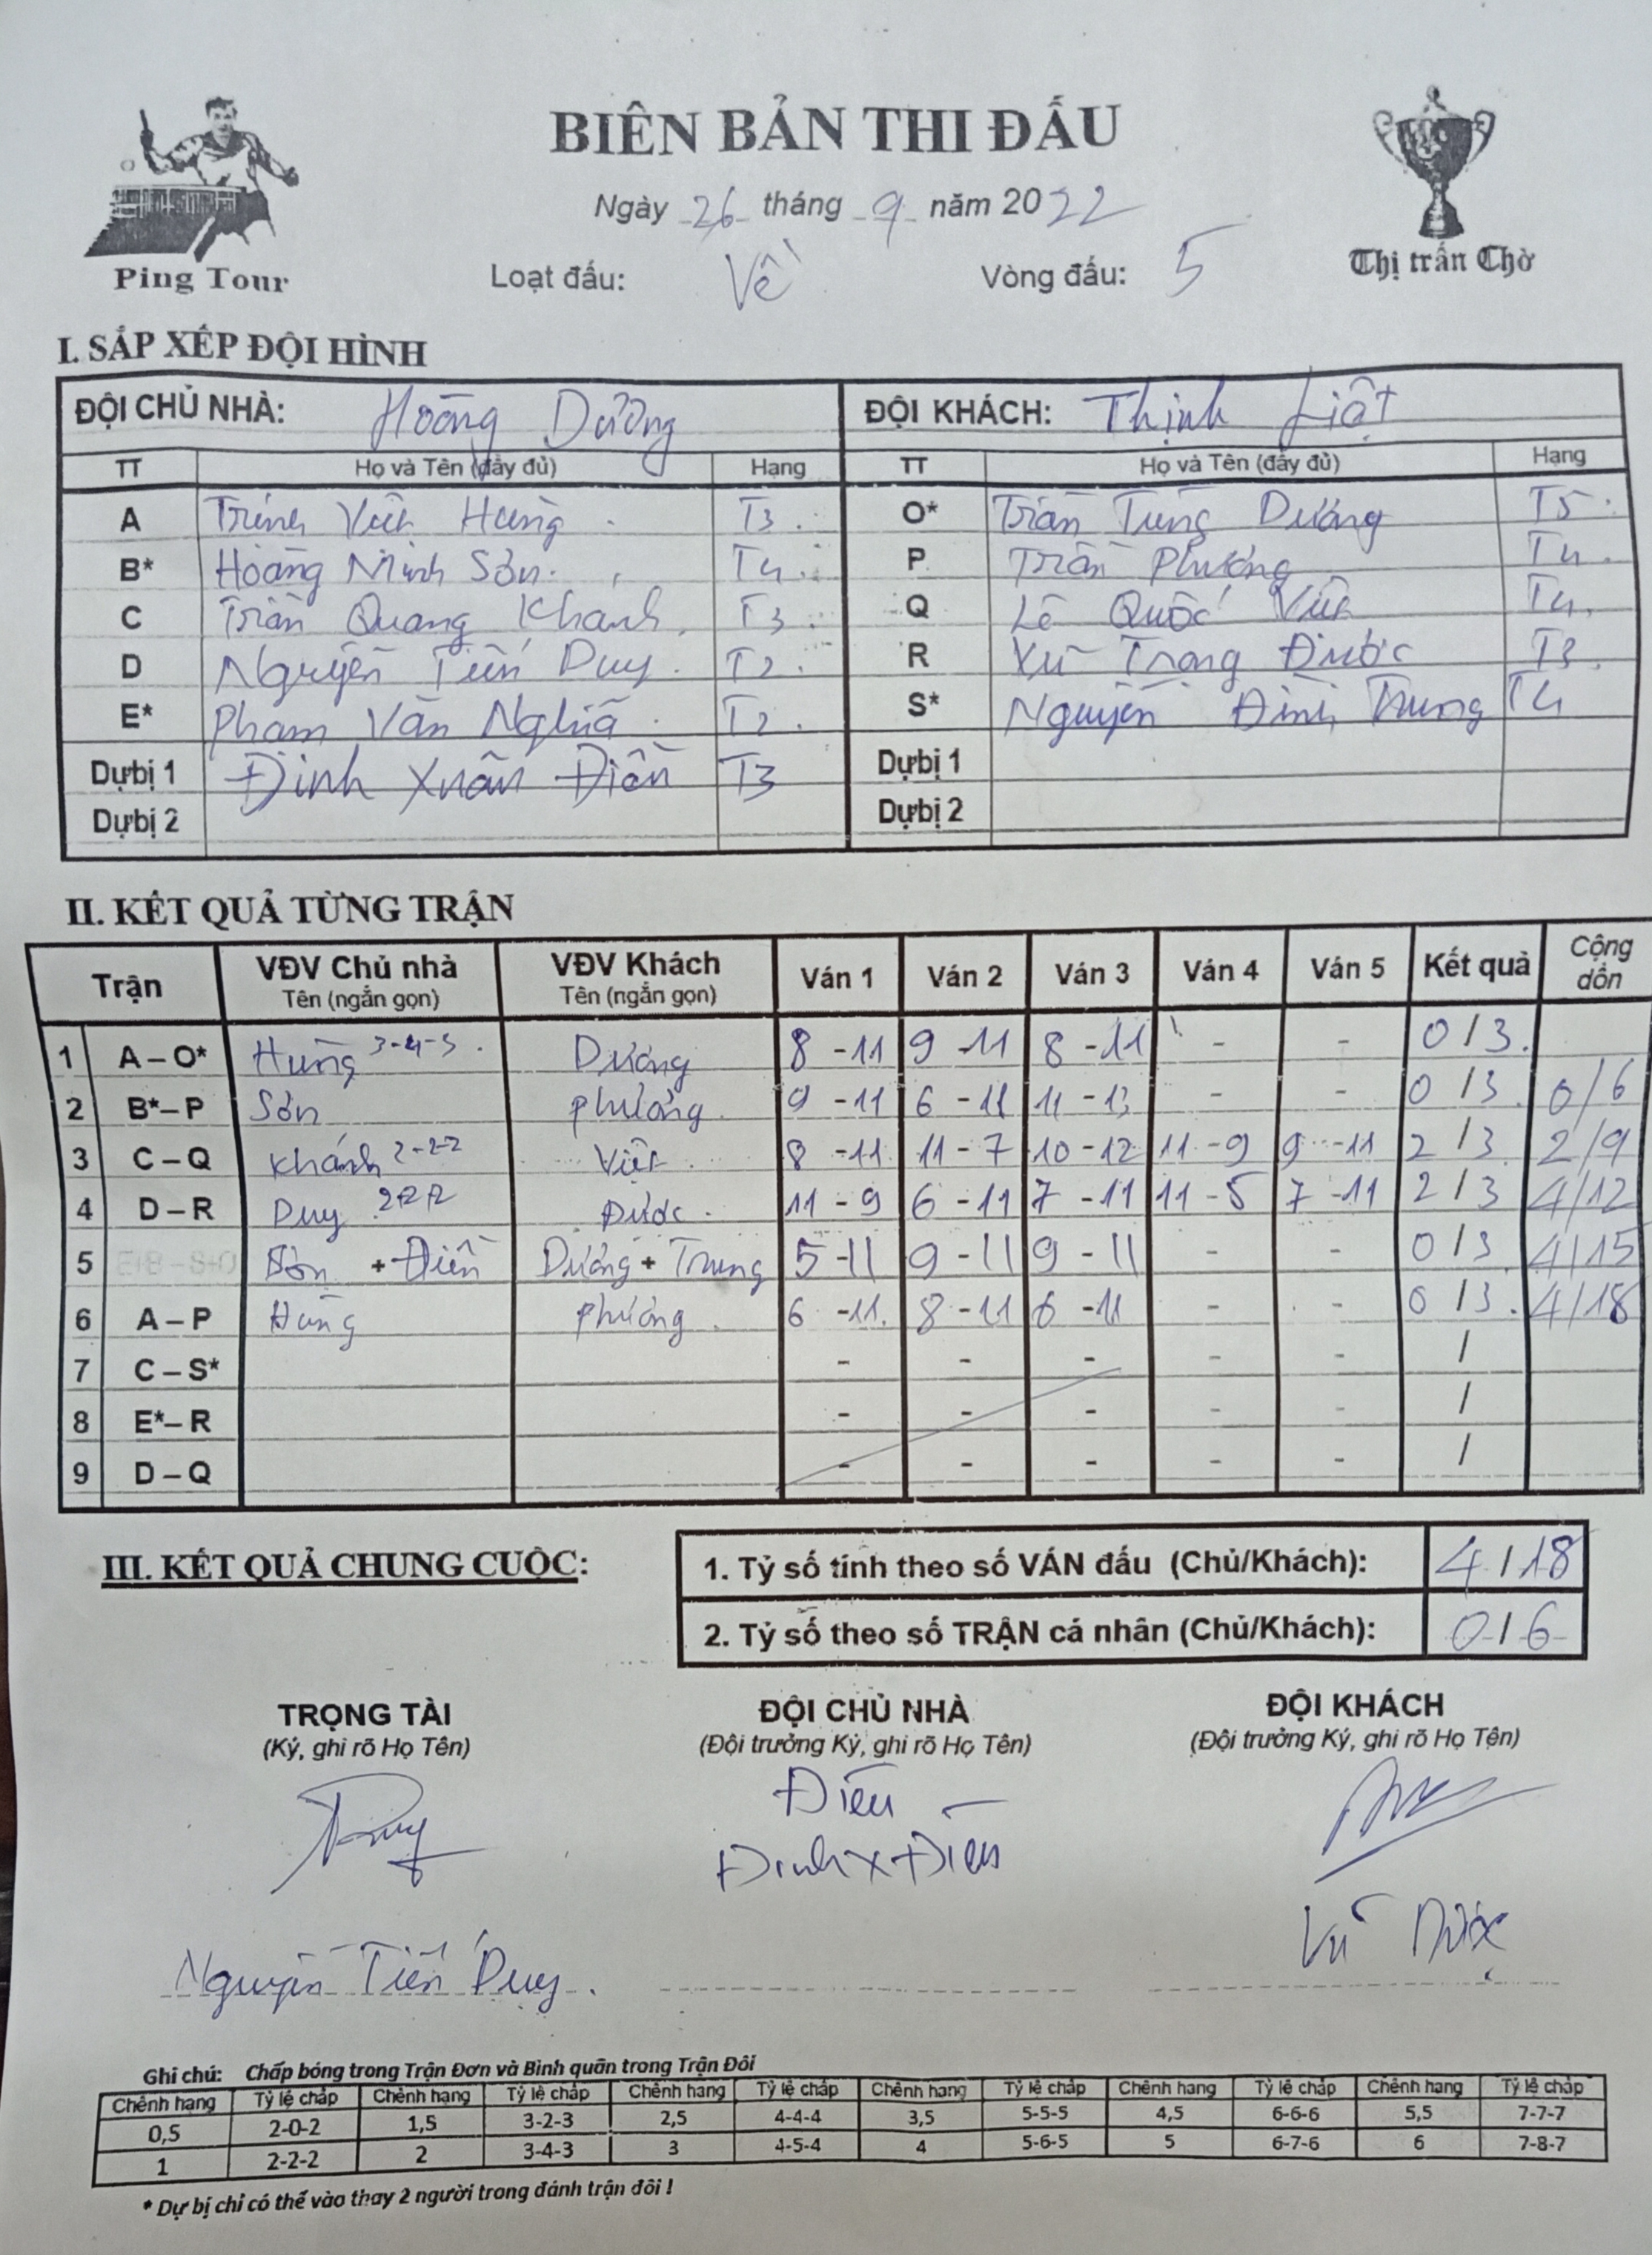 BIÊN BẢN THI ĐẤU
Ngày 26 tháng 9 năm 2022
Ping Tour
Loạt đấu: Về
Vòng đấu: 5
Thị trấn Chờ
I. SẮP XẾP ĐỘI HÌNH
ĐỘI CHỦ NHÀ: Hoàng Dương ĐỘI KHÁCH: Thịnh Liệt
TT Họ và Tên (đầy đủ) Hạng TT Họ và Tên (đầy đủ) Hạng
A Trịnh Việt Hùng T3 O* Trần Tùng Dương T5
B* Hoàng Minh Sơn T4 P Trần Phương T4
C Trần Quang Khánh T3 Q Lê Quốc Việt T4
D Nguyễn Tiến Duy T2 R Vũ Trọng Được T3
E* Phạm Văn Nghĩa T2 S* Nguyễn Đình Trung T4
Dự bị 1 Đinh Xuân Điền T3 Dự bị 1
Dự bị 2 Dự bị 2
II. KẾT QUẢ TỪNG TRẬN
Trận VĐV Chủ nhà VĐV Khách Ván 1 Ván 2 Ván 3 Ván 4 Ván 5 Kết quả Cộng dồn
Tên (ngắn gọn) Tên (ngắn gọn)
1 A – O* Hùng 3-4-3 Dương 8 - 11 9 - 11 8 - 11 - - 0 / 3
2 B* – P Sơn Phương 9 - 11 6 - 11 11 - 13 - - 0 / 3 0/6
3 C – Q Khánh 2-2-2 Việt 8 - 11 11 - 7 10 - 12 11 - 9 9 - 11 2 / 3 2/9
4 D – R Duy 2-2-2 Được 11 - 9 6 - 11 7 - 11 11 - 5 7 - 11 2 / 3 4/12
5 Sơn + Điền Dương + Trung 5 - 11 9 - 11 9 - 11 - - 0 / 3 4/15
6 A – P Hùng Phương 6 - 11 8 - 11 6 - 11 - - 0 / 3 4/18
7 C – S* - - - - - /
8 E* – R - - - - - /
9 D – Q - - - - - /
III. KẾT QUẢ CHUNG CUỘC:
1. Tỷ số tính theo số VÁN đấu (Chủ/Khách): 4 / 18
2. Tỷ số theo số TRẬN cá nhân (Chủ/Khách): 0 / 6
TRỌNG TÀI ĐỘI CHỦ NHÀ ĐỘI KHÁCH
(Ký, ghi rõ Họ Tên) (Đội trưởng Ký, ghi rõ Họ Tên) (Đội trưởng Ký, ghi rõ Họ Tên)
Điền
Đinh X Điền
Vũ Được
Nguyễn Tiến Duy
Ghi chú: Chấp bóng trong Trận Đơn và Bình quân trong Trận Đôi
Chênh hạng Tỷ lệ chấp Chênh hạng Tỷ lệ chấp Chênh hạng Tỷ lệ chấp Chênh hạng Tỷ lệ chấp Chênh hạng Tỷ lệ chấp Chênh hạng Tỷ lệ chấp
0,5 2-0-2 1,5 3-2-3 2,5 4-4-4 3,5 5-5-5 4,5 6-6-6 5,5 7-7-7
1 2-2-2 2 3-4-3 3 4-5-4 4 5-6-5 5 6-7-6 6 7-8-7
* Dự bị chỉ có thể vào thay 2 người trong đánh trận đôi !